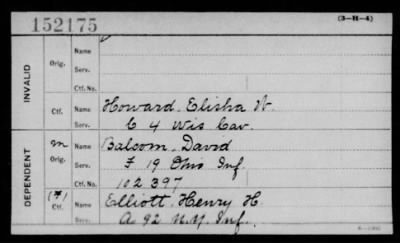 152175
(3-H-4)
INVALID
Orig.
Name
Serv.
Ctf. No.
Ctf.
Name Howard, Elisha W.
Serv. C 4 Wis Cav.
DEPENDENT
m
Orig.
Name Balcom, David
Serv. F 19 Ohio Inf.
Ctf. No. 102397
Ctf.
Name Elliott, Henry H.
Serv. A. 92 N.Y. Inf.